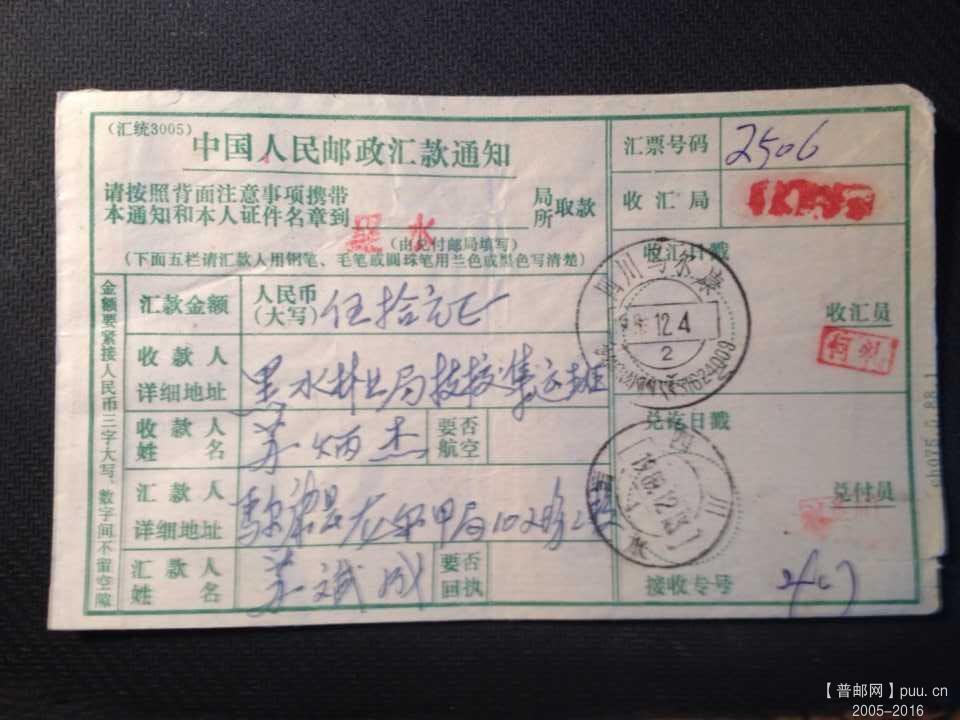 (汇统3005)
中国人民邮政汇款通知
请按照背面注意事项携带
本通知和本人证件名章到 黑水 局所取款
(由兑付邮局填写)
(下面五栏请汇款人用钢笔、毛笔或圆珠笔用兰色或黑色写清楚)
汇票号码 2506
收汇局
收汇日戳
四川马尔康
12.4
2
收汇员
何
金额要紧接人民币三字大写、数字间不留空隙
汇款金额 人民币(大写) 伍拾元正
收款人详细地址 黑水林业局技校集运班
收款人姓名 苏炳杰 要否航空
汇款人详细地址 龙尔甲局102
汇款人姓名 苏斌成 要否回执
兑讫日戳
四川
黑水
兑付员
接收专号
sb075.0.88.1
【普邮网】puu.cn
2005-2016